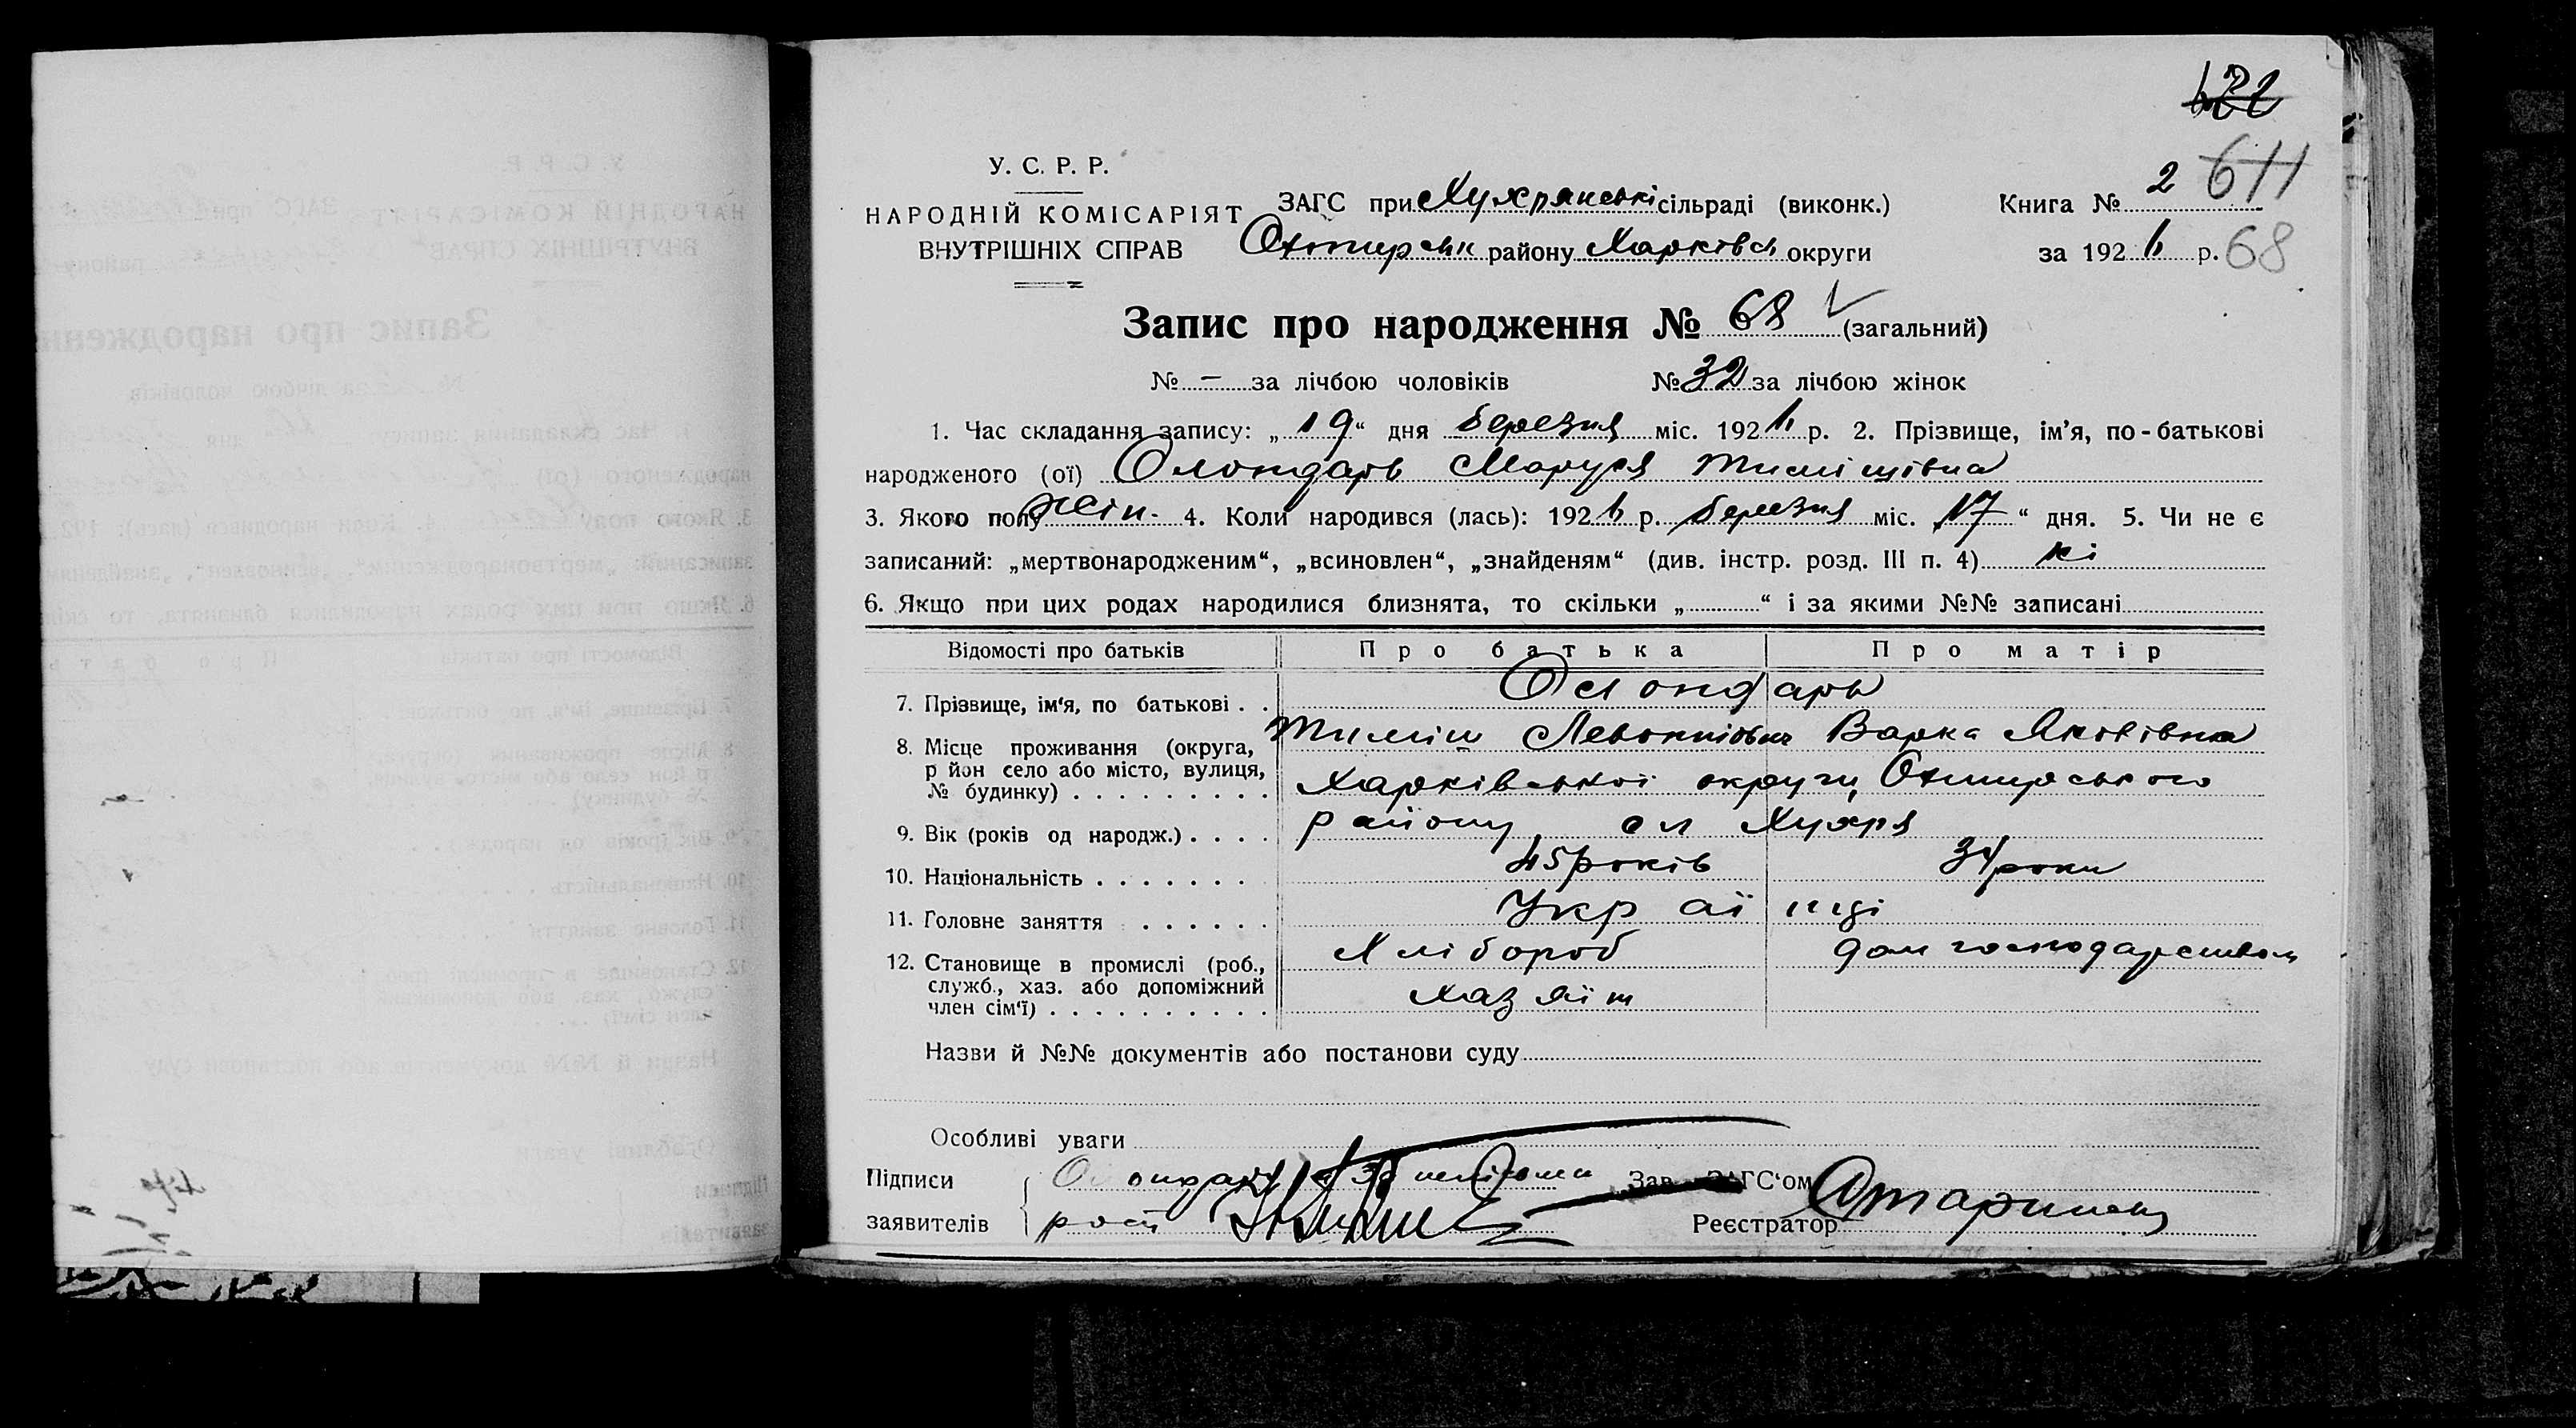 122
У. С. Р. Р.
НАРОДНІЙ КОМІСАРІЯТ
ВНУТРІШНІХ СПРАВ
ЗАГС при Хухрянській сільраді (виконк.)
Охтирськ району Харківсь округи
Книга № 2 611
за 1926 р. 68
Запис про народження № 68 (загальний)
№ - за лічбою чоловіків № 32 за лічбою жінок
1. Час складання запису: „19“ дня березня міс. 1926 р. 2. Прізвище, ім’я, по-батькові
народженого (ої) Маруся Тимішівна
3. Якого полу жін. 4. Коли народився (лась): 1926 р. березня міс. 17“ дня. 5. Чи не є
записаний: „мертвонародженим“, „всиновлен“, „знайденям“ (див. інстр. розд. III п. 4) ні
6. Якщо при цих родах народилися близнята, то скільки „ “ і за якими №№ записані
Відомості про батьків Про батька Про матір
7. Прізвище, ім‘я, по батькові . .
8. Місце проживання (округа,
р йон село або місто, вулиця,
№ будинку) . . . . . . . . .
Тиміш Варка Яковівна
Харківської округи, Охтирського
району, сл Хухря
9. Вік (років од народж.) . . . .
45 років 34 роки
10. Національність . . . . . . .
Українці
11. Головне заняття . . . . . .
Хлібороб дом господарством
12. Становище в промислі (роб.,
служб., хаз. або допоміжний
член сім‘ї) . . . . . . . . . .
хазяїн
Назви й №№ документів або постанови суду
Особливі уваги
Підписи
заявителів
Зав. ЗАГС‘ом
Реєстратор